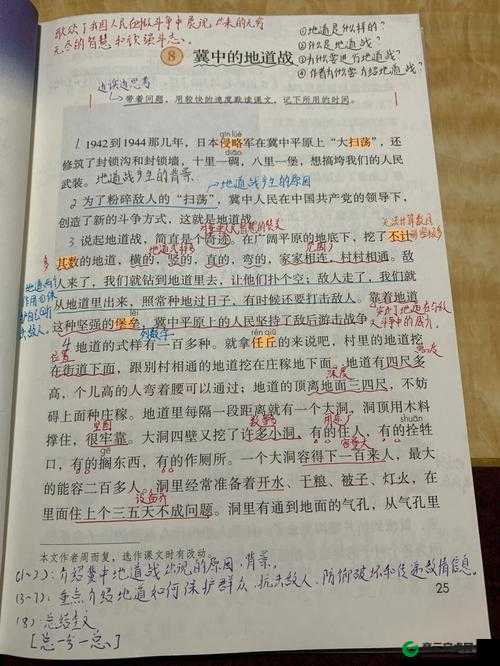 歌颂了我国人民在抗敌斗争中展现出来的无穷
无尽的智慧和顽强斗志。
①地道是什么样的?
②什么是地道战?
③为什么要进行地道战?
④作者为什么要介绍地道战?
8 冀中的地道战
边读边思考
带着问题,用较快的速度默读课文,记下所用的时间。
qīn lüè
1 1942到1944那几年,日本侵略军在冀中平原上“大扫荡”,还
修筑了封锁沟和封锁墙,十里一碉,八里一堡,想搞垮我们的人民
武装。地道战产生的背景
地道战产生的原因
2 为了粉碎敌人的“扫荡”,冀中人民在中国共产党的领导下,
创造了新的斗争方式,这就是地道战。
3 说起地道战,简直是个奇迹。在广阔平原的地底下,挖了不计
地道式样多
其数的地道,横的,竖的,直的,弯的,家家相连,村村相通。敌
人来了,我们就钻到地道里去,让他们扑个空;敌人走了,我们就
从地道里出来,照常种地过日子,有时候还要打击敌人。靠着地道
lěi
这种坚强的堡垒,冀中平原上的人民坚持了敌后游击战争。
列数字
4 地道的式样有一百多种。就拿任丘的来说吧,村里的地道挖
位置
在街道下面,跟别村相通的地道挖在庄稼地下面。地道有四尺多
深度
高,个儿高的人弯着腰可以通过;地道的顶离地面三四尺,不妨
碍上面种庄稼。地道里每隔一段距离就有一个大洞,洞顶用木料
shuān
撑住,很牢靠。大洞四壁又挖了许多小洞,有的住人,有的拴牲
gē
口,有的搁东西,有的作厕所。一个大洞容得下一百来人,最大
的能容二百多人。洞里经常准备着开水、干粮、被子、灯火,在
设备齐
里面住上个三五天不成问题。洞里有通到地面的气孔,从气孔里
本文作者周而复,选作课文时有改动。
25
介绍冀中地道战出现的原因、背景。
重点介绍地道如何保护群众、抗击敌人、防御破坏和传递敌情信息。
(8) 总结全文
[总—分—总]